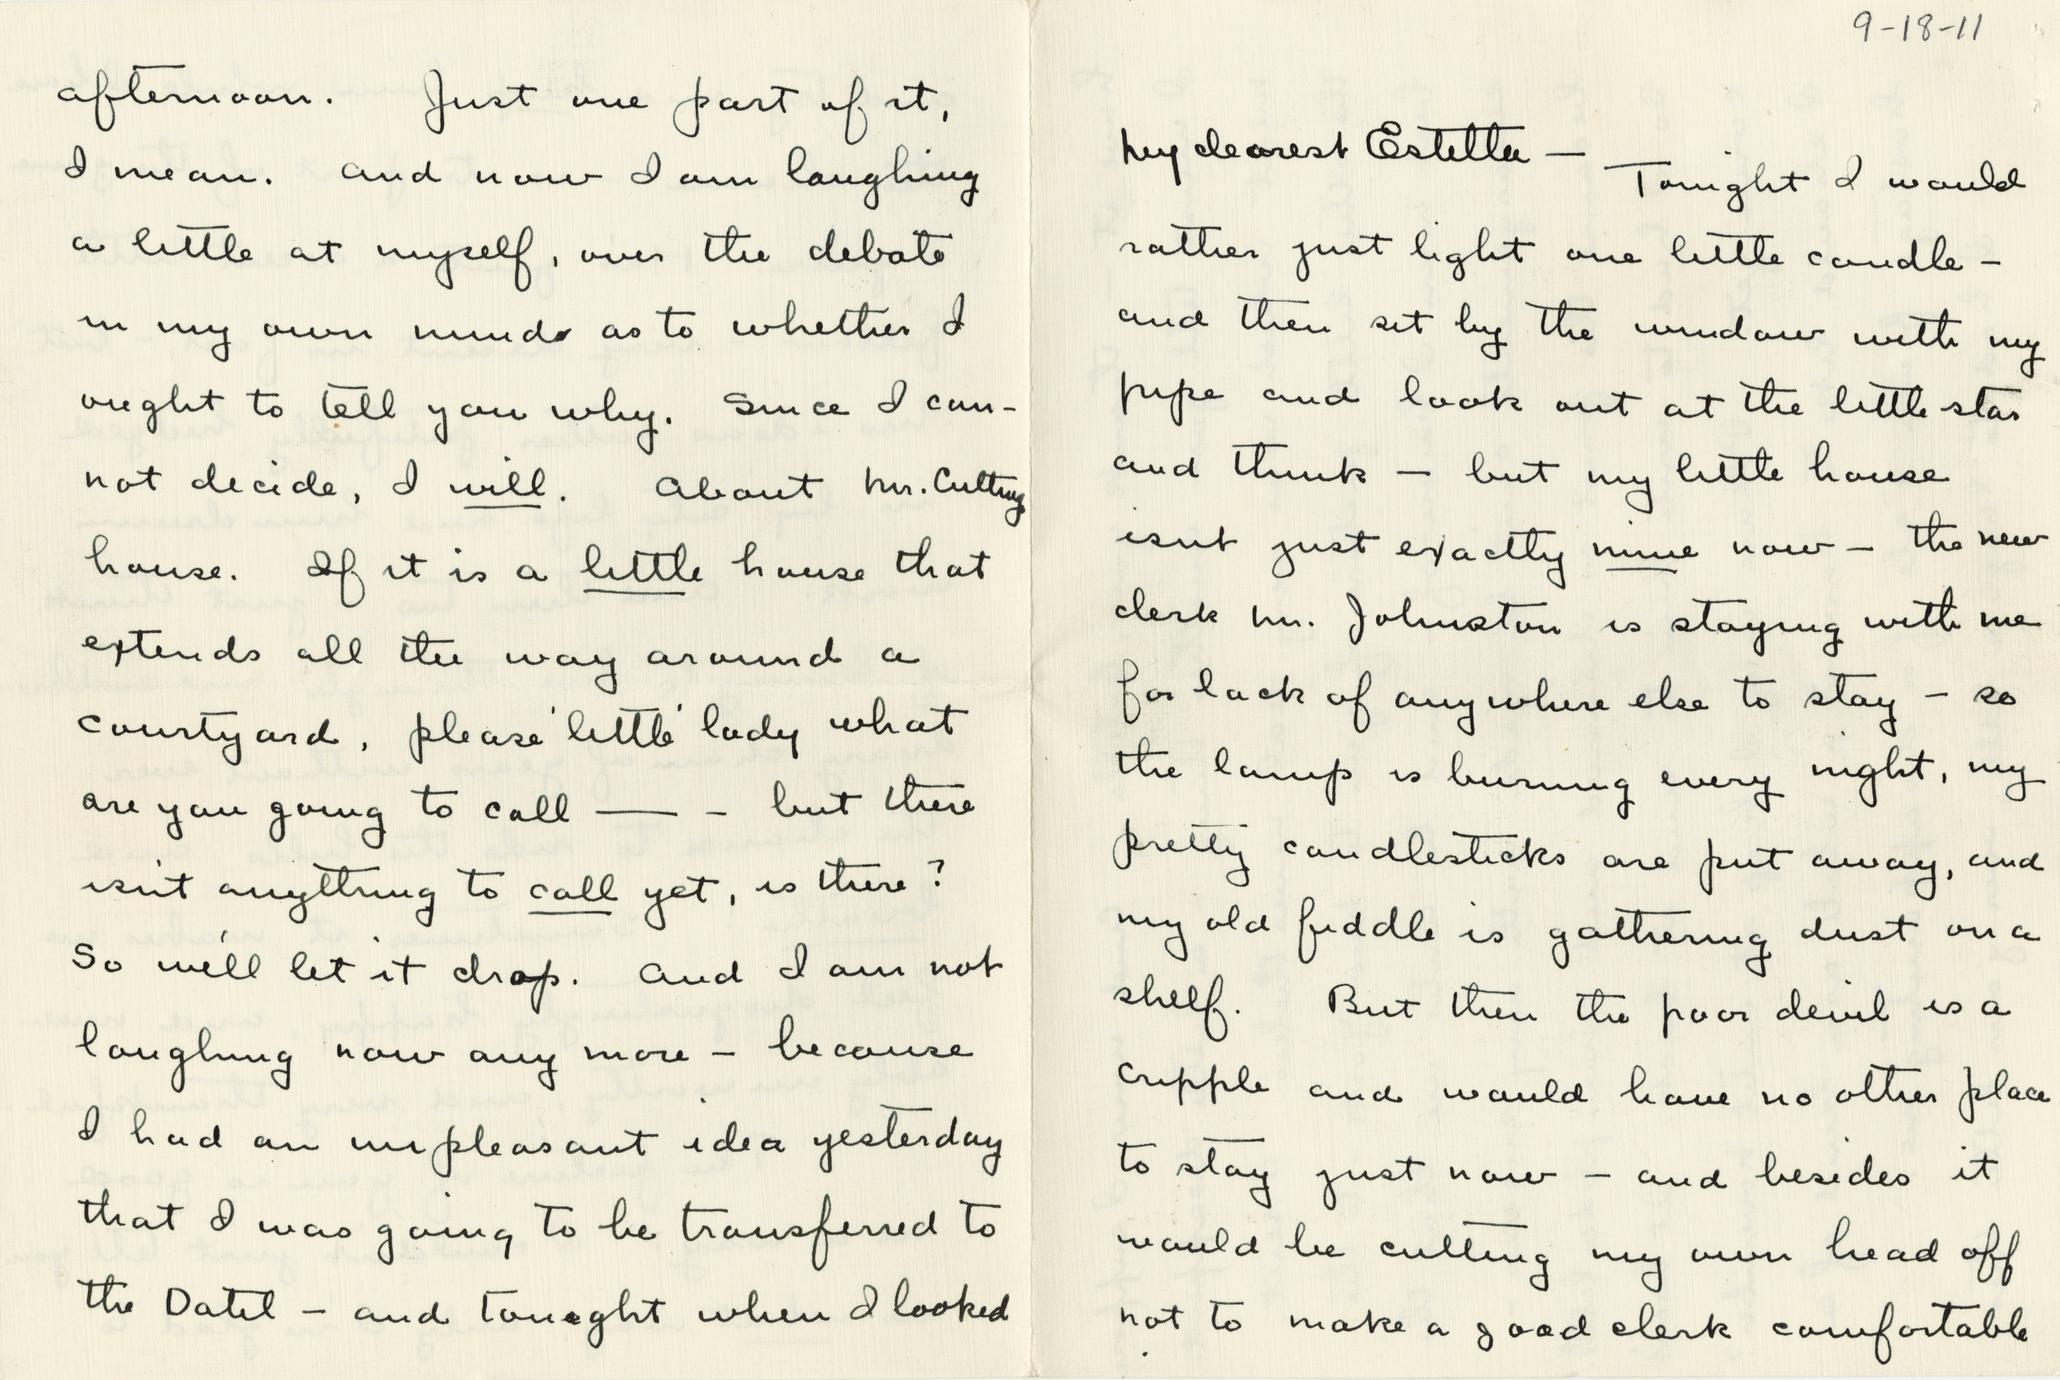 9-18-11
My dearest Estella —
Tonight I would
rather just light one little candle —
and then sit by the window with my
pipe and look out at the little star
and think — but my little house
isnt just exactly mine now — the new
clerk Mr. Johnston is staying with me
for lack of anywhere else to stay — so
the lamp is burning every night, my
pretty candlesticks are put away, and
my old fiddle is gathering dust on a
shelf. But then the poor devil is a
cripple and would have no other place
to stay just now — and besides it
would be cutting my own head off
not to make a good clerk comfortable
afternoon. Just one part of it,
I mean. And now I am laughing
a little at myself, over the debate
in my own mind as to whether I
ought to tell you why. Since I can-
not decide, I will. About Mr. Cutting
house. If it is a little house that
extends all the way around a
courtyard, please 'little' lady what
are you going to call —— – but there
isn't anything to call yet, is there?
So we'll let it drop. And I am not
laughing now any more — because
I had an unpleasant idea yesterday
that I was going to be transferred to
the Datil — and tonight when I looked